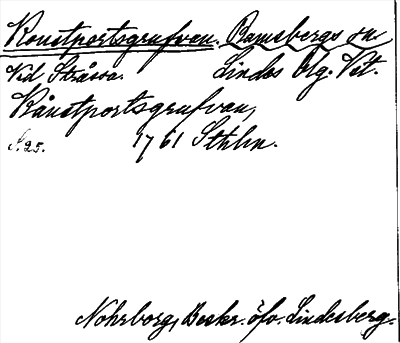 Konstportsgrufvan. Ramsbergs sn
Vid Stråssa. Lindes Blg. Vst.
Kånstportsgrufvan,
S. 25. 1761 Sthlm.
Nohrborg, Beskr. öfv. Lindesberg.